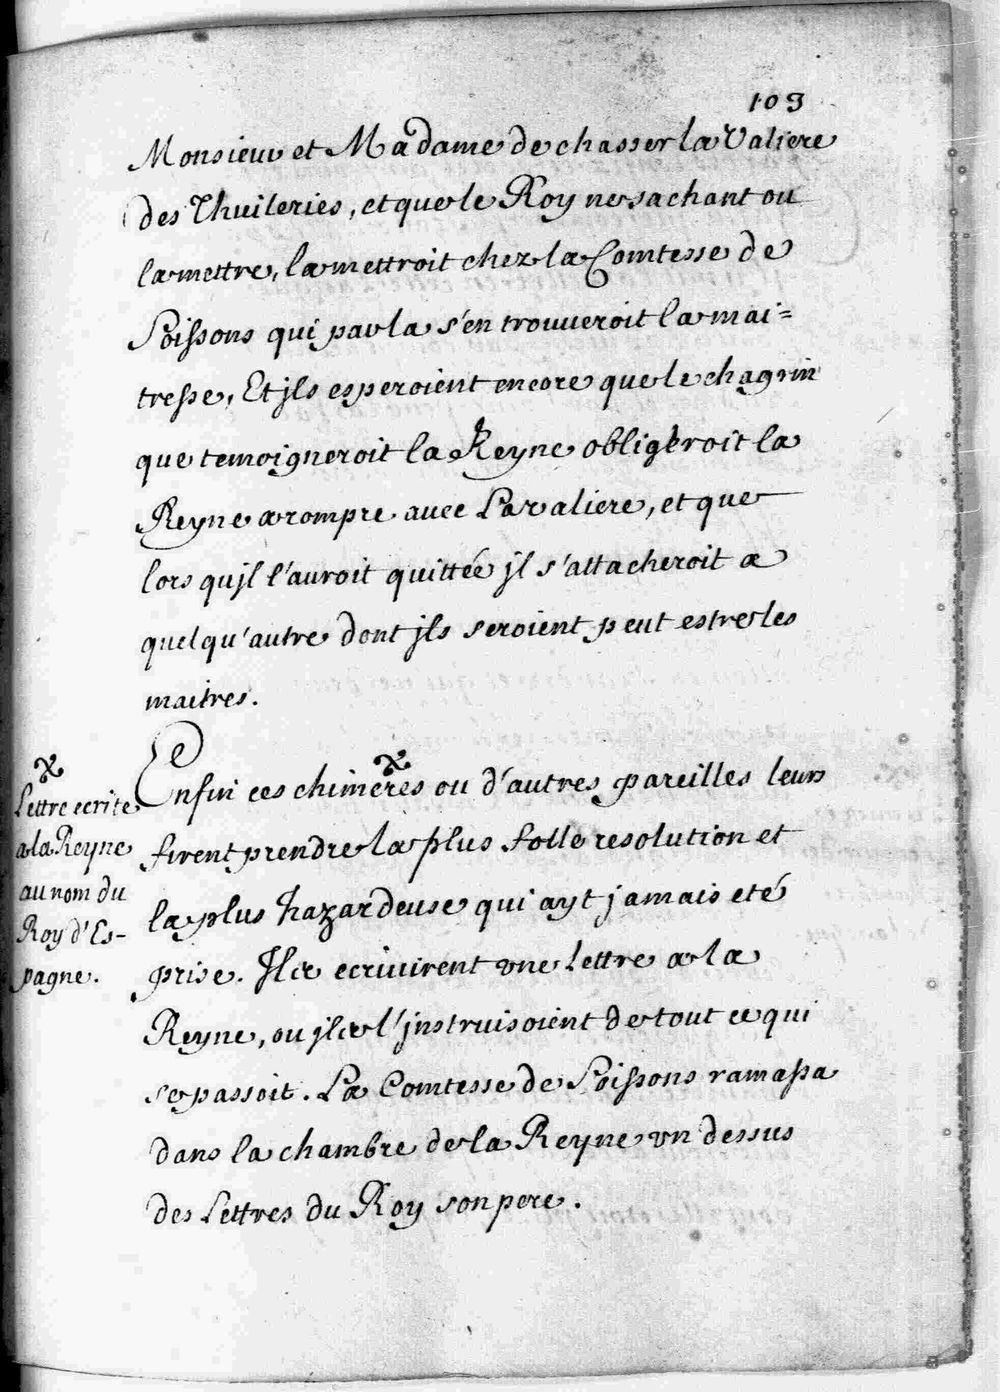 103
Monsieur et Madame de chasser la Valiere
des Thuileries, et que le Roy ne sachant ou
la mettre, la mettroit chez la Comtesse de
Soissons qui par la s'en trouueroit la mai=
tresse, Et jls esperoient encore que le chagrin
que temoigneroit la Reyne obligeroit la
Reyne a rompre auec La valiere, et que
lors qujl l'auroit quittée jl s'attacheroit a
quelqu'autre dont jls seroient peut estre les
maitres.
Enfin ces chimeres ou d'autres pareilles leurs
firent prendre la plus folle resolution et
la plus hazardeuse qui ayt jamais eté
prise. Ils ecriuirent vne Lettre a la
Reyne, ou jls l'jnstruisoient de tout ce qui
se passoit. La Comtesse de Soissons ramassa
dans la chambre de la Reyne vn dessus
des Lettres du Roy son pere.
Lettre ecrite
a la Reyne
au nom du
Roy d'Es-
pagne.